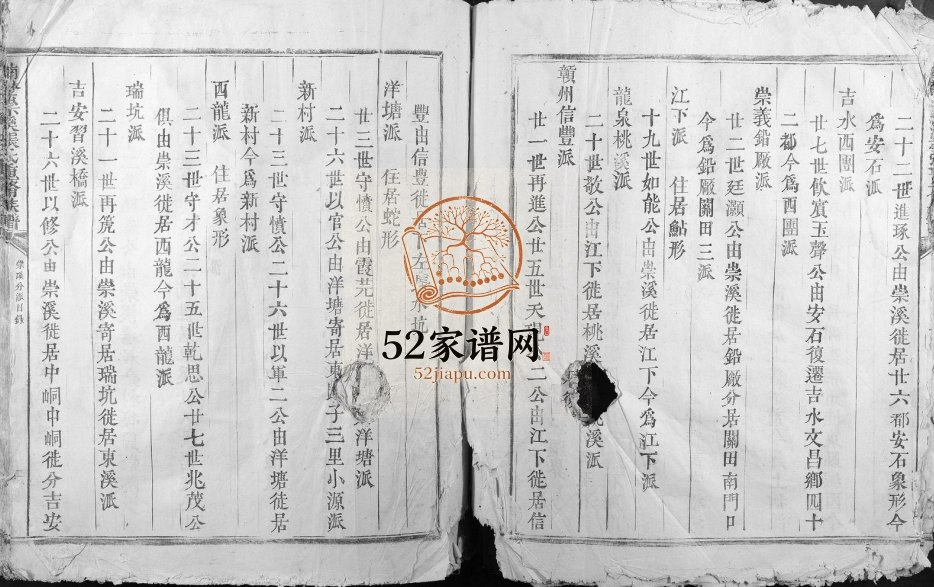 二十二世進琢公由崇溪徙居廿六都安石象形今
為安石派
吉水西團派
廿七世飲賓玉聲公由安石復遷吉水文昌鄉四十
二都今為西團派
崇義鉛厰派
廿二世廷灝公由崇溪徙居鉛厰分居關田南門口
今為鉛厰關田三派
江下派 住居鮎形
十九世如能公由崇溪徙居江下今為江下派
龍泉桃溪派
二十世敬公由江下徙居桃溪 桃溪派
贛州信豐派
廿一世再進公廿五世天 二公由江下徙居信
豐由信豐徙 左 水坑
洋塘派 住居蛇形
廿三世守憤公由霞 徙居洋 洋塘派
二十六世以官公由洋塘寄居東 子三里小源派
新村派
二十三世守憤公二十六世以軍二公由洋塘徒居
新村今為新村派
西龍派 住居象形
二十三世守才公二十五世乾思公廿七世兆茂公
俱由崇溪徙居西龍今為西龍派
瑞坑派
二十一世再箎公由崇溪寄居瑞坑徙居東溪派
吉安習溪橋派
二十六世以修公由崇溪徙居中峒中峒徙分吉安
崇溪分派目錄
52家谱网
52jiapu.com